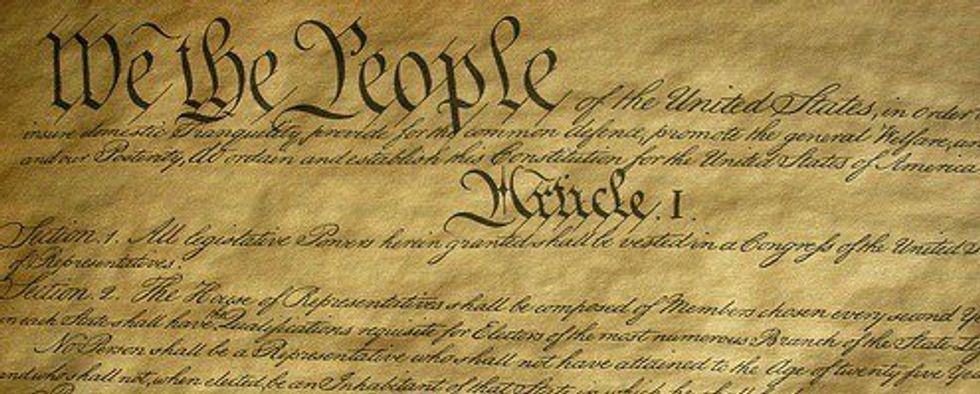 We the People of the United States, in order
insure domestic Tranquility, provide for the common defence, promote the general Welfare, an
and our Posterity, do ordain and establish this Constitution for the United States of America
Article. I.
Section. 1. All legislative Powers herein granted shall be vested in a Congress of the United
of Representatives.
Section. 2. The House of Representatives shall be composed of Members chosen every second Y
in each State shall have the Qualifications requisite for Electors of the most numerous Branch of the State L
No Person shall be a Representative who shall not have attained to the Age of twenty five Yea
and who shall not, when elected, be an Inhabitant of that State in which he shall